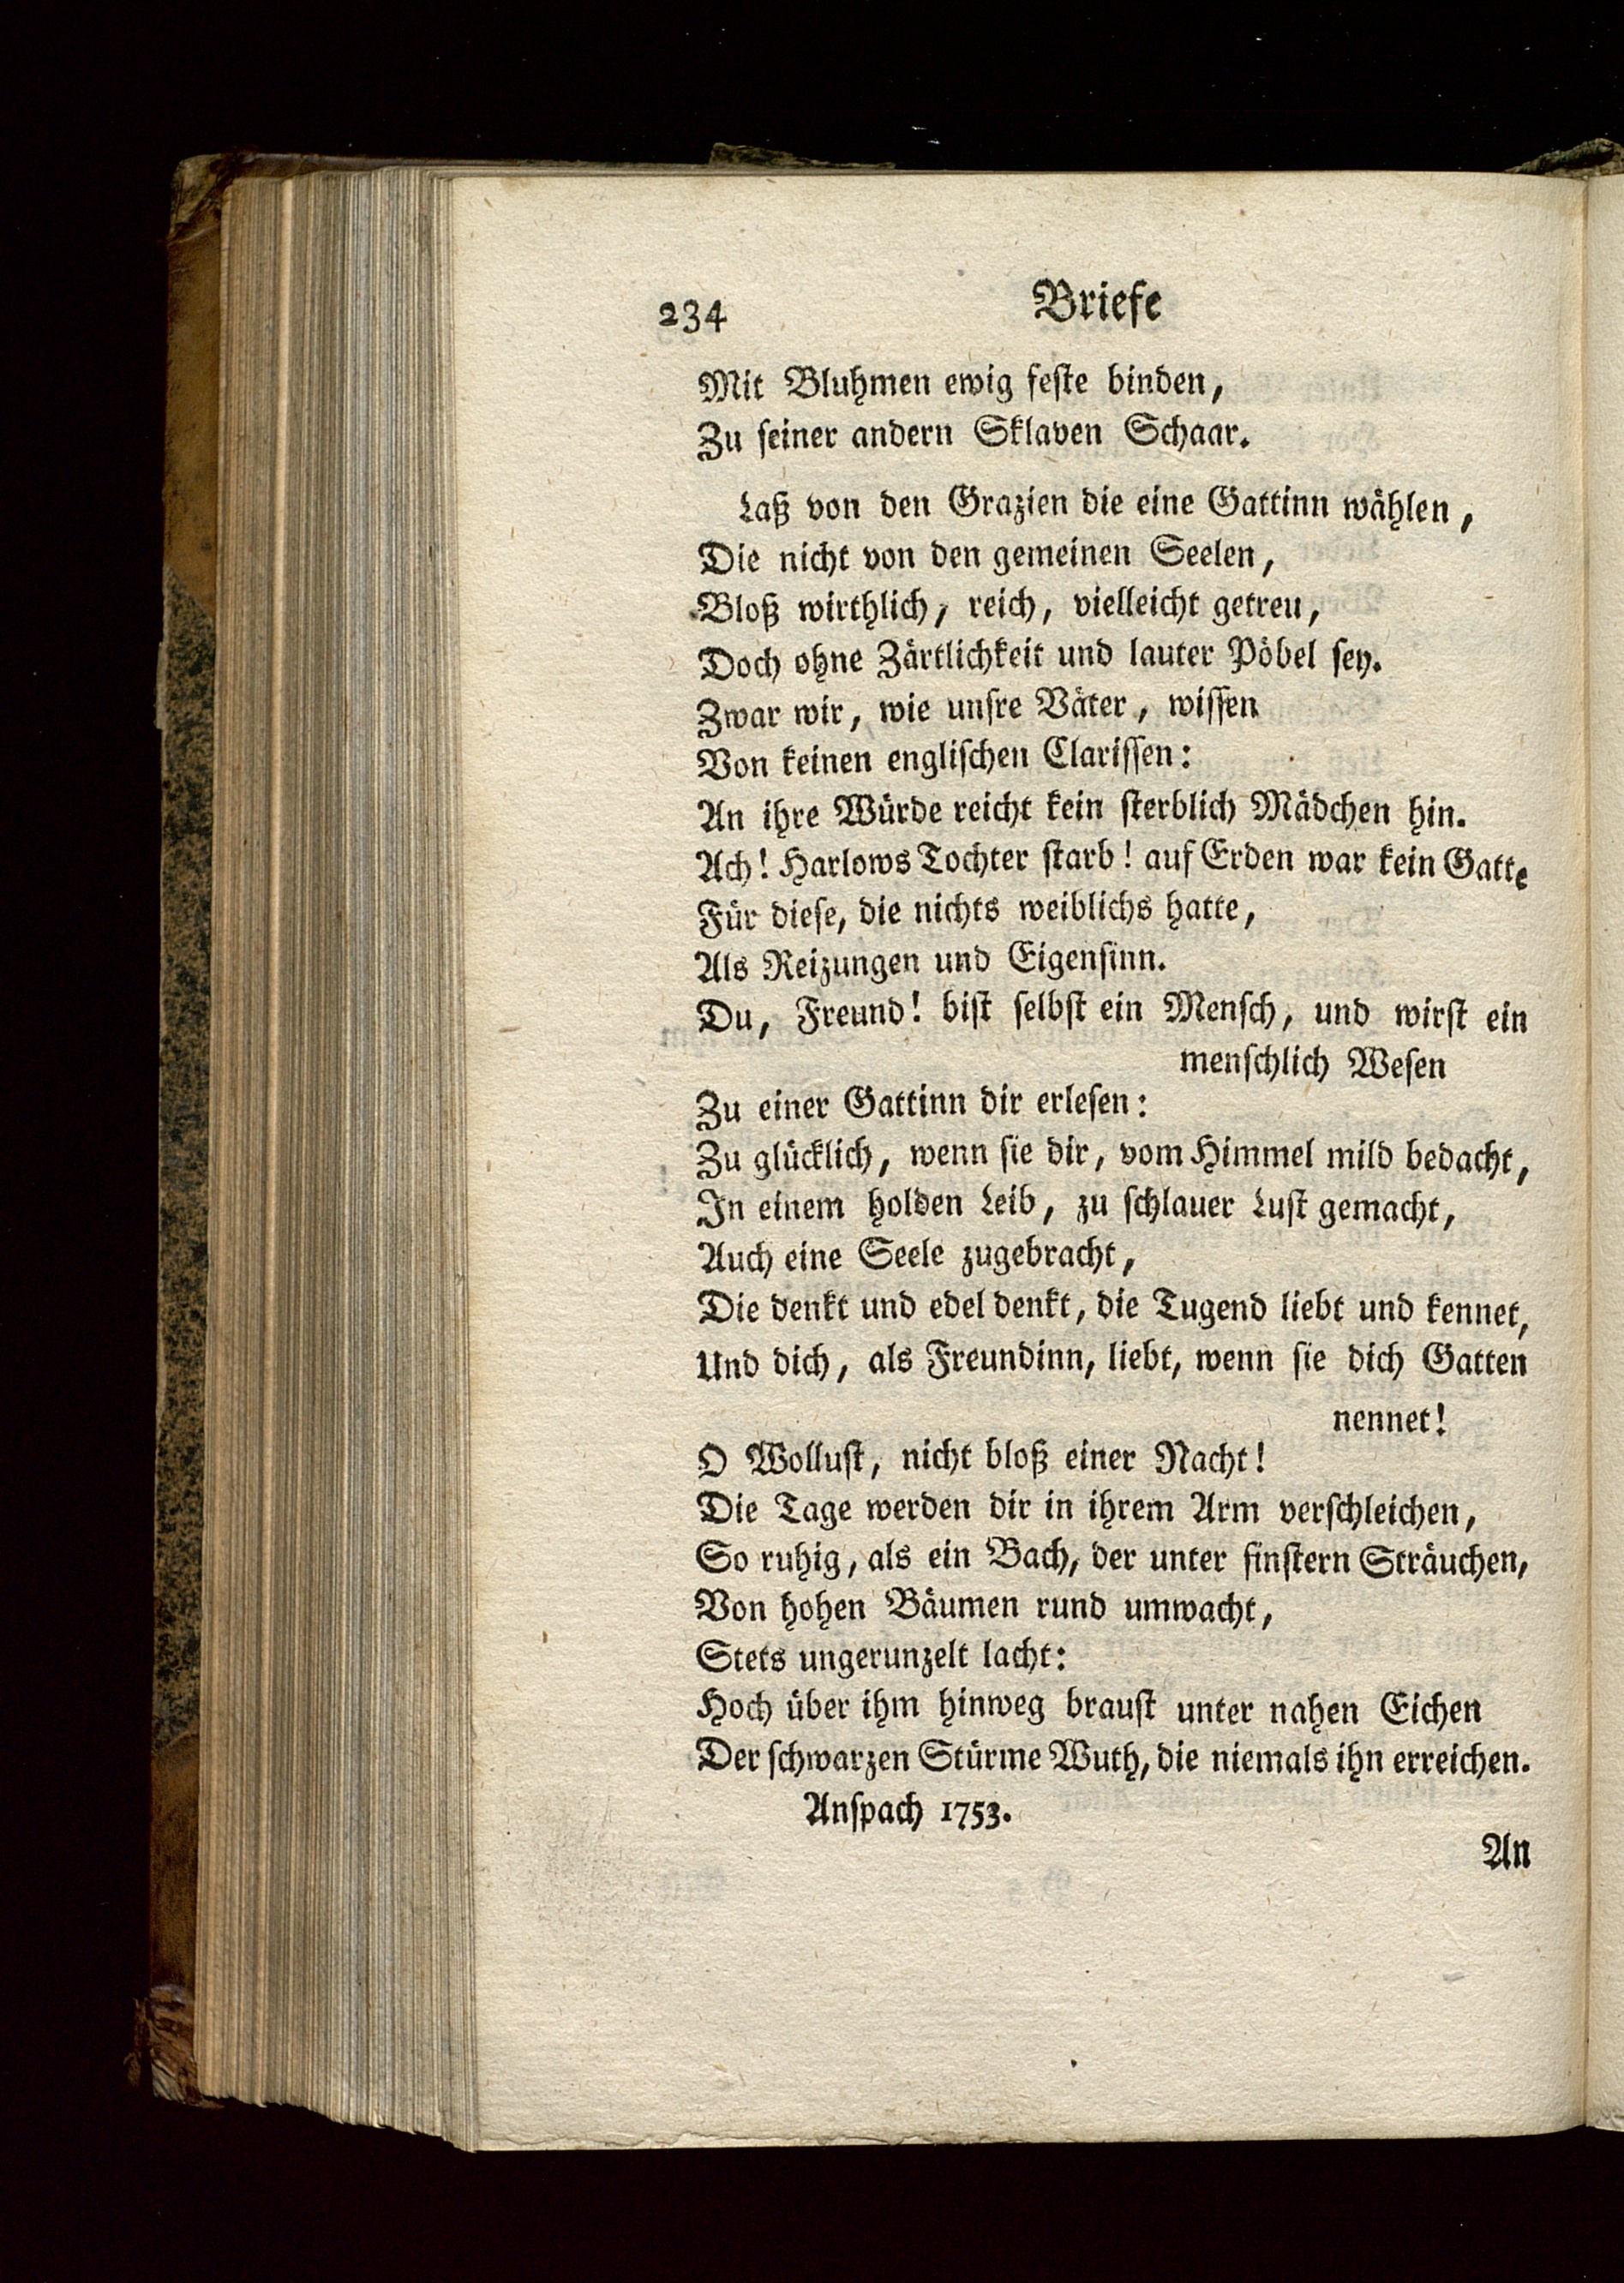 234 Briefe
Mit Bluhmen ewig feſte binden,
Zu ſeiner andern Sklaven Schaar.
Laß von den Grazien die eine Gattinn wählen,
Die nicht von den gemeinen Seelen,
Bloß wirthlich, reich, vielleicht getreu,
Doch ohne Zärtlichkeit und lauter Pöbel ſey.
Zwar wir, wie unſre Väter, wiſſen
Von keinen engliſchen Clariſſen:
An ihre Würde reicht kein ſterblich Mädchen hin.
Ach! Harlows Tochter ſtarb! auf Erden war kein Gatte
Für dieſe, die nichts weiblichs hatte,
Als Reizungen und Eigenſinn.
Du, Freund! biſt ſelbſt ein Menſch, und wirſt ein
menſchlich Weſen
Zu einer Gattinn dir erleſen:
Zu glücklich, wenn ſie dir, vom Himmel mild bedacht,
In einem holden Leib, zu ſchlauer Luſt gemacht,
Auch eine Seele zugebracht,
Die denkt und edel denkt, die Tugend liebt und kennet,
Und dich, als Freundinn, liebt, wenn ſie dich Gatten
nennet!
O Wolluſt, nicht bloß einer Nacht!
Die Tage werden dir in ihrem Arm verſchleichen,
So ruhig, als ein Bach, der unter finſtern Sträuchen,
Von hohen Bäumen rund umwacht,
Stets ungerunzelt lacht:
Hoch über ihm hinweg brauſt unter nahen Eichen
Der ſchwarzen Stürme Wuth, die niemals ihn erreichen.
Anſpach 1753.
An